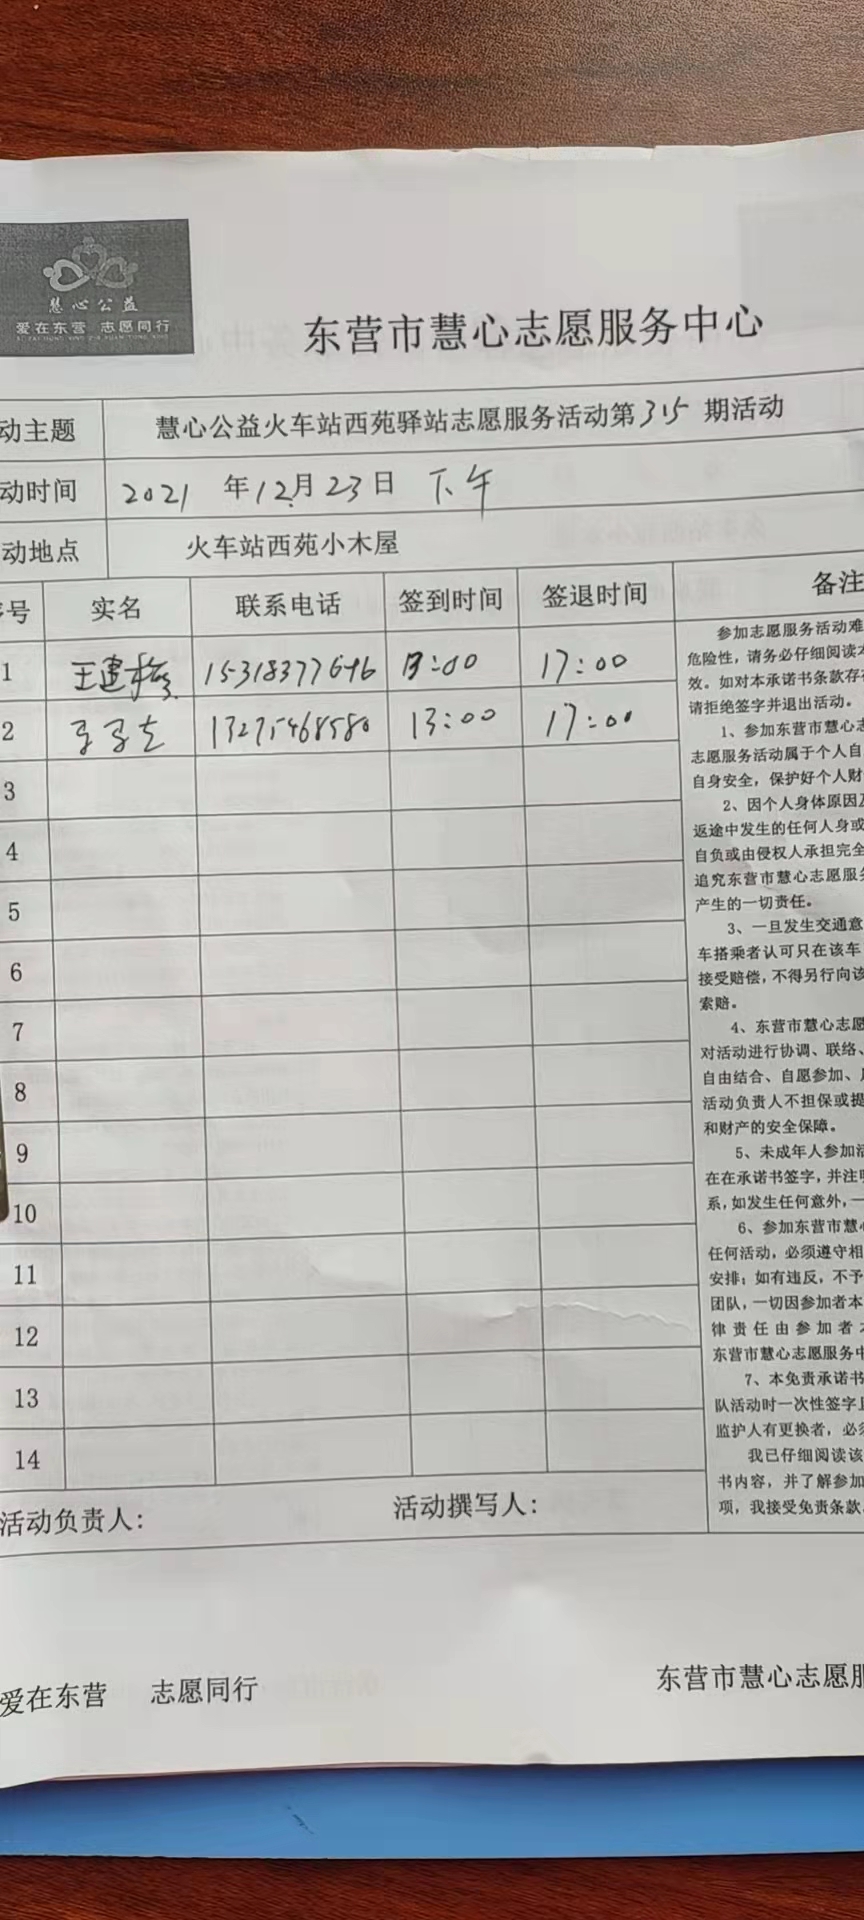 慧心公益
爱在东营 志愿同行
东营市慧心志愿服务中心
动主题 慧心公益火车站西苑驿站志愿服务活动第315期活动
动时间 2021年12月23日 下午
动地点 火车站西苑小木屋
号 实名 联系电话 签到时间 签退时间 备注
1 王建 15318377696 13:00 17:00
2 13275468580 13:00 17:00
3
4
5
6
7
8
9
10
11
12
13
14
参加志愿服务活动难
危险性，请务必仔细阅读本
效。如对本承诺书条款存
请拒绝签字并退出活动。
1、参加东营市慧心志
志愿服务活动属于个人自
自身安全，保护好个人财
2、因个人身体原因及
返途中发生的任何人身或
自负或由侵权人承担完全
追究东营市慧心志愿服务
产生的一切责任。
3、一旦发生交通意
车搭乘者认可只在该车
接受赔偿，不得另行向该
索赔。
4、东营市慧心志愿
对活动进行协调、联络、
自由结合、自愿参加、
活动负责人不担保或提
和财产的安全保障。
5、未成年人参加活
在在承诺书签字，并注明
系，如发生任何意外，一
6、参加东营市慧心
任何活动，必须遵守相
安排；如有违反，不予
团队，一切因参加者本
律责任由参加者本
东营市慧心志愿服务中
7、本免责承诺书
队活动时一次性签字且
监护人有更换者，必须
我已仔细阅读该
书内容，并了解参加
项，我接受免责条款
活动负责人： 活动撰写人：
爱在东营 志愿同行 东营市慧心志愿服